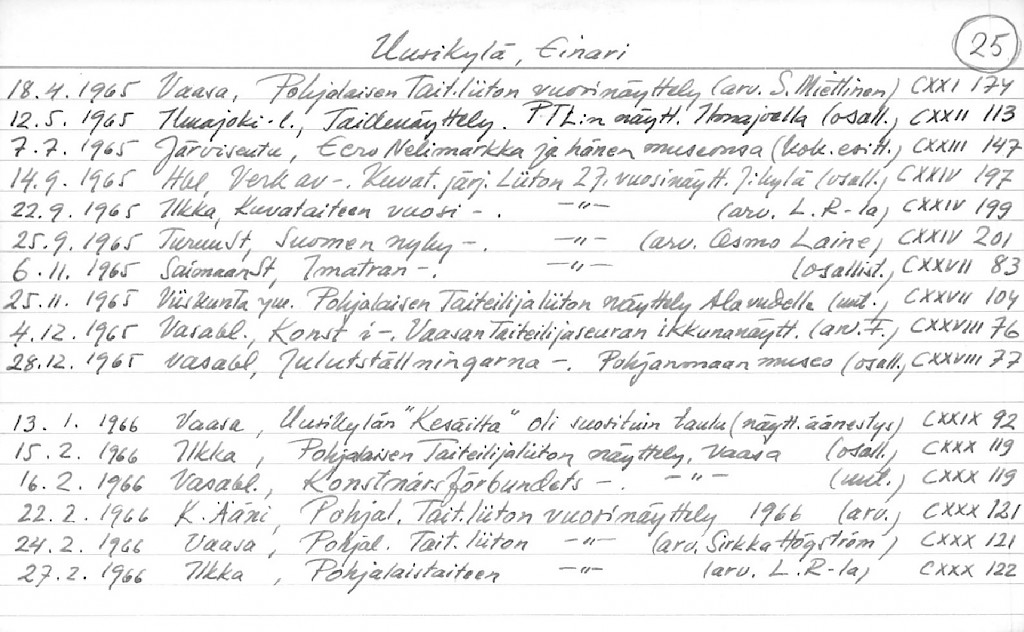 Uusikylä, Einari
25
18.4.1965 Vaasa, Pohjalaisen Tait.liiton vuosinäyttely (arv. S. Miettinen) CXXI 174
12.5.1965 Ilmajoki-l., Taidenäyttely. PTL:n näytt. Ilmajoella (osall.) CXXII 113
7.7.1965 Järviseutu, Eero Nelimarkka ja hänen museonsa (kok. esitt.) CXXIII 147
14.9.1965 Hbl, Verk av -. Kuvat. järj. Liiton 27. vuosinäytt. J:kylä (osall.) CXXIV 197
22.9.1965 Ilkka, Kuvataiteen vuosi -. -"- (arv. L. R-la) CXXIV 199
25.9.1965 TurunSt, Suomen nyky -. -"- (arv. Osmo Laine) CXXIV 201
6.11.1965 SaimaanSt, Imatran -. -"- (osallist.) CXXVII 83
25.11.1965 Viiskunta ym. Pohjalaisen Taiteilijaliiton näyttely Alavudella (uut.) CXXVII 104
4.12.1965 Vasabl., Konst i -. Vaasan Taiteilijaseuran ikkunanäytt. (arv. F.) CXXVIII 76
28.12.1965 Vasabl, Julutställningarna -. Pohjanmaan museo (osall.) CXXVIII 77
13.1.1966 Vaasa, Uusikylän "Kesäilta" oli suosituin taulu (näytt. äänestys) CXXIX 92
15.2.1966 Ilkka, Pohjalaisen Taiteilijaliiton näyttely, Vaasa (osall.) CXXX 119
16.2.1966 Vasabl., Konstnärsförbundets -. -"- (uut.) CXXX 119
22.2.1966 K. Ääni, Pohjal. Tait.liiton vuosinäyttely 1966 (arv.) CXXX 121
24.2.1966 Vaasa, Pohjal. Tait.liiton -"- (arv. Sirkka Högström) CXXX 121
27.2.1966 Ilkka, Pohjalaistaiteen -"- (arv. L. R-la) CXXX 122